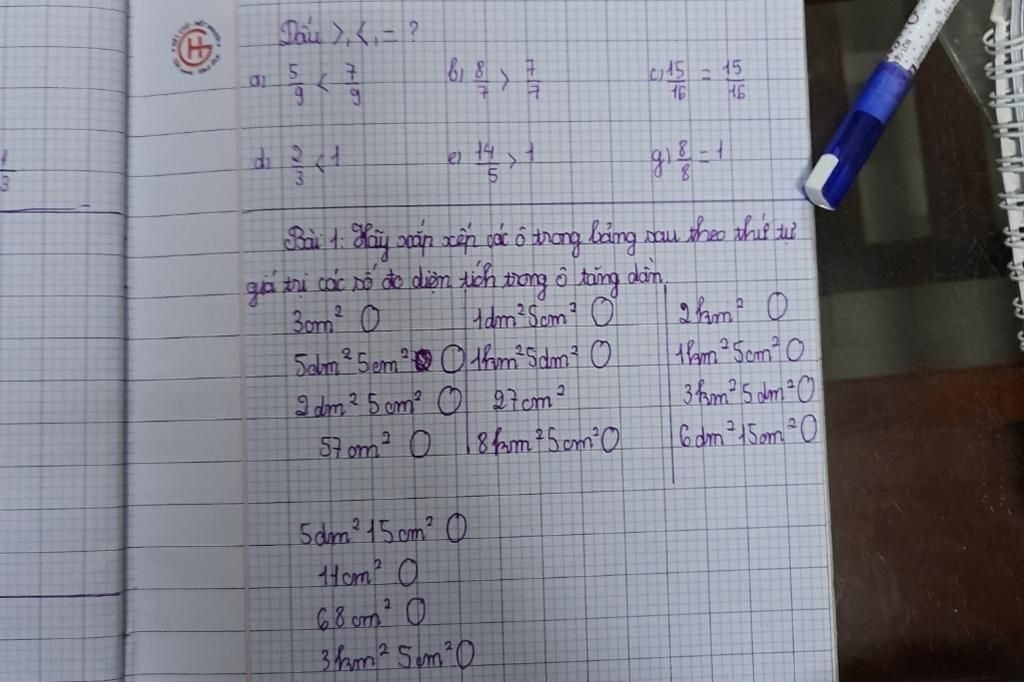 Dấu >, <, = ?
a) 5/9 < 7/9 b) 8/7 > 7/7 c) 15/16 = 15/16
d) 2/3 < 1 e) 14/5 > 1 g) 8/8 = 1
Bài 1: Hãy xắp xếp các ô trong bảng sau theo thứ tự
giá trị các số đo diện tích trong ô tăng dần.
3cm² O 1dm²5cm² O 2km² O
5dm²5cm² O 1km²5dm² O 1km²5cm² O
2dm²5cm² O 27cm² 3km²5dm² O
57cm² O 8km²5cm² O 6dm²15cm² O
5dm²15cm² O
11cm² O
68cm² O
3km²5cm² O